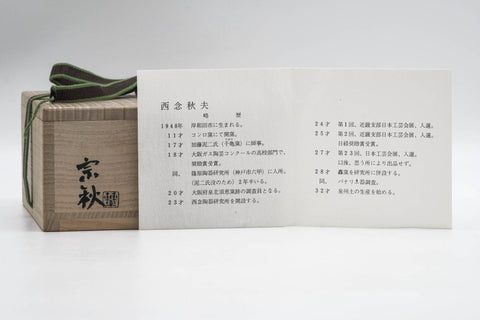 西念秋夫
略歴
1948年 岸和田市に生まれる。
11才 コンロ窯にて開窯。
17才 加藤泥二氏(千亀窯)に師事。
18才 大阪ガス陶芸コンクールの高校部門で、
奨励賞受賞。
同、 篠原陶器研究所(神戸市六甲)に入所。
(泥二氏没のため)2年半いる。
20才 大阪府泉北須恵窯跡の調査員となる。
23才 西念陶器研究所を開設する。
24才 第1回、近畿支部日本工芸会展、入選。
25才 第2回、近畿支部日本工芸会展、入選。
日経奨励賞受賞。
27才 第23回、日本工芸会展、入選。
以後、思う所により出品せず。
28才 轟窯を研究所に併設する。
同、 パナリ土器調査。
32才 泉州土の生産を始める。
宗秋